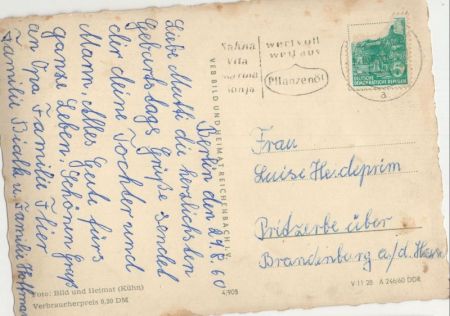 Berlin den 29.8.60
Liebe Mutti die herzlichsten
Geburtstags Grüße sendet
dir deine Tochter und
Mann. Alles Gute fürs
ganze Leben. Schönen Gruß
an Opa Familie
Familie u. Familie Hoffmann
VEB BILD UND HEIMAT REICHENBACH I. V.
Sahna
Vita
Marina
Sonja
wertvoll
weil aus
Pflanzenöl
DEUTSCHE
DEMOKRATISCHE REPUBLIK
5
a
Frau
Luise Heidepriem
Pritzerbe über
Brandenburg a/d. Havel
Foto: Bild und Heimat (Kühn)
Verbraucherpreis 0,20 DM
4/908
V 11 28 A 246/60 DDR